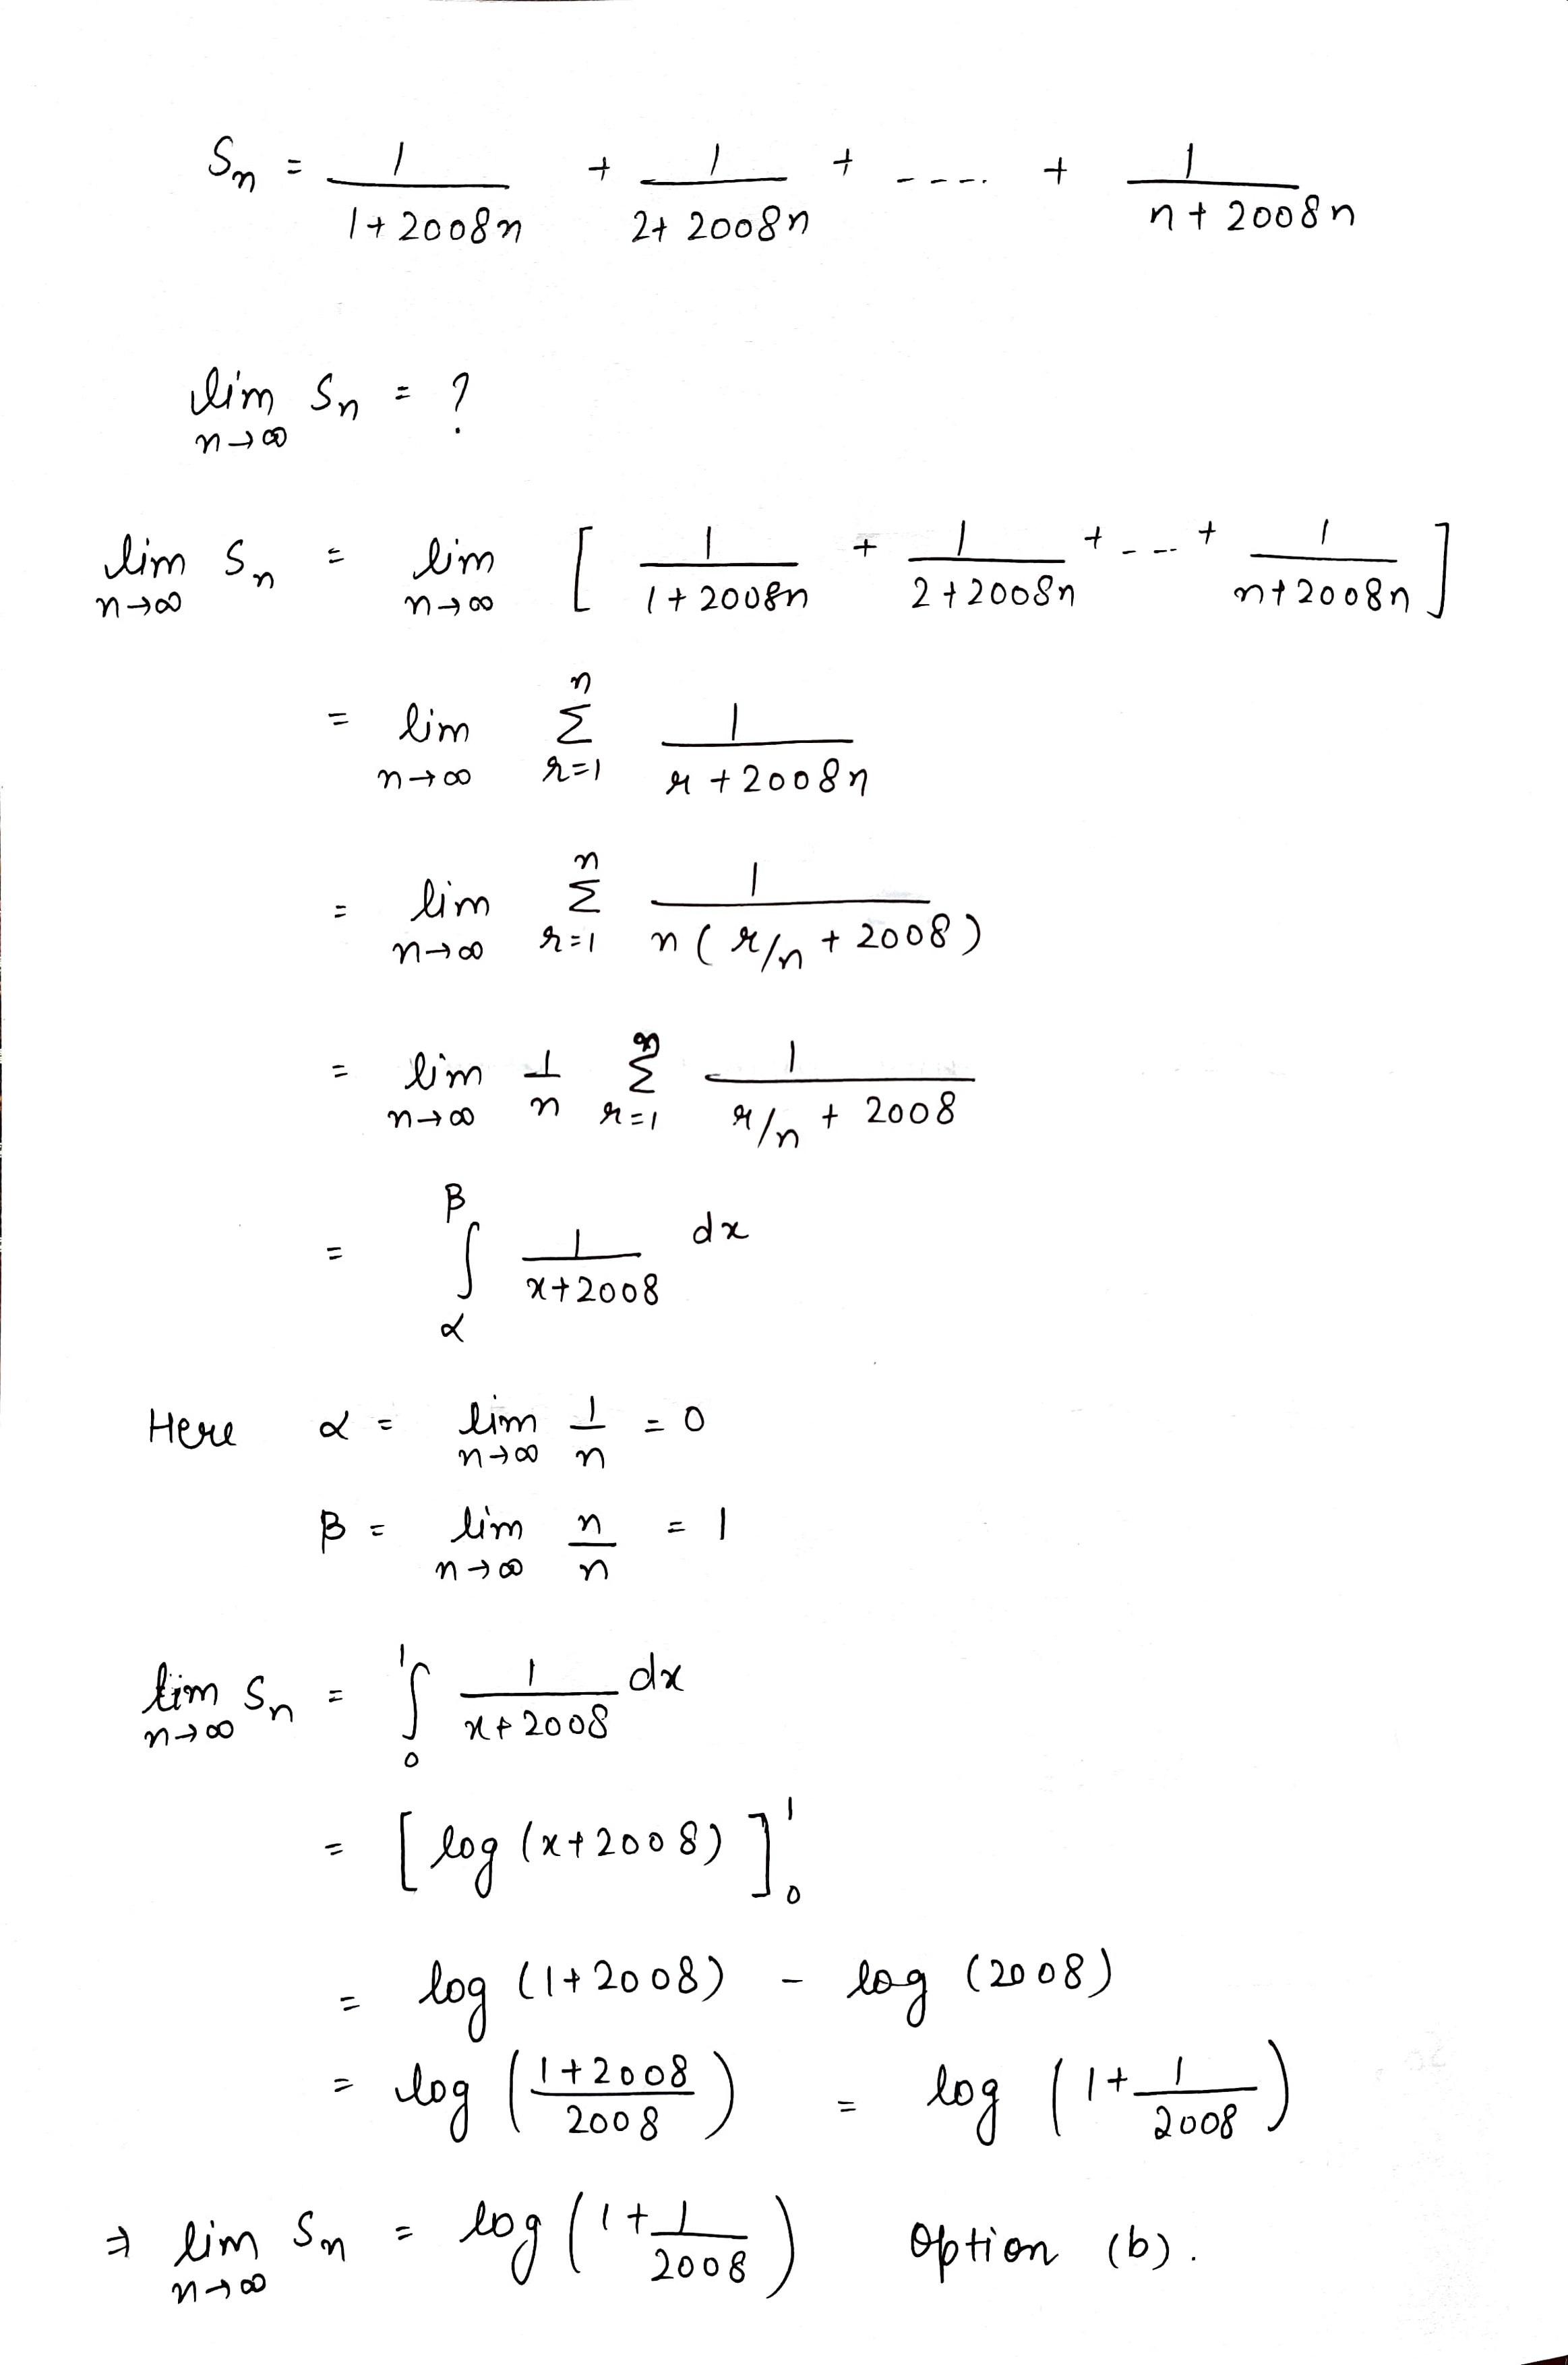 Sn = 1/(1+2008n) + 1/(2+2008n) + ---- + 1/(n+2008n)
lim n→∞ Sn = ?
lim n→∞ Sn = lim n→∞ [ 1/(1+2008n) + 1/(2+2008n) + --- + 1/(n+2008n) ]
= lim n→∞ Σ r=1 n 1/(r+2008n)
= lim n→∞ Σ r=1 n 1/(n(r/n + 2008))
= lim n→∞ 1/n Σ r=1 n 1/(r/n + 2008)
= ∫ α β 1/(x+2008) dx
Here α = lim n→∞ 1/n = 0
β = lim n→∞ n/n = 1
lim n→∞ Sn = ∫ 0 1 1/(x+2008) dx
= [ log (x+2008) ] 0 1
= log (1+2008) - log (2008)
= log ( (1+2008)/2008 ) = log ( 1+ 1/2008 )
⇒ lim n→∞ Sn = log ( 1+ 1/2008 ) Option (b).